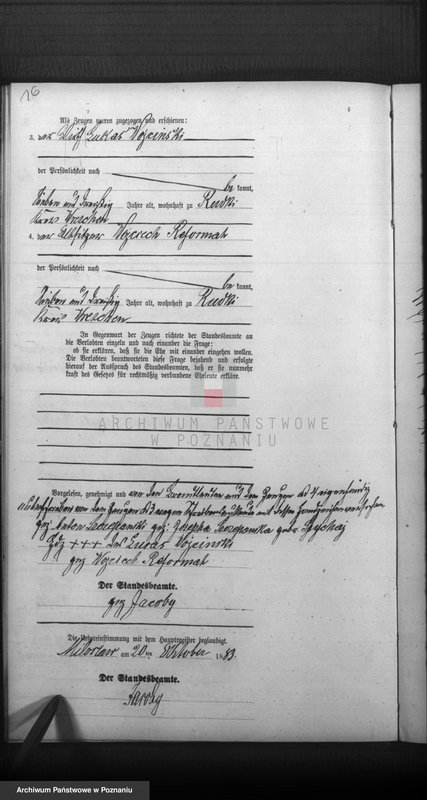 76
Als Zeugen waren zugezogen und erschienen:
3. der Lukas Wojcinski
der Persönlichkeit nach
be kannt,
sieben und dreißig Jahre alt, wohnhaft zu Rudki
Kreis Wreschen
4. der Altsitzer Wojciech Reformat
der Persönlichkeit nach
be kannt,
sieben und dreißig Jahre alt, wohnhaft zu Rudki
Kreis Wreschen
In Gegenwart der Zeugen richtete der Standesbeamte an
die Verlobten einzeln und nach einander die Frage:
ob sie erklären, daß sie die Ehe mit einander eingehen wollen.
Die Verlobten beantworteten diese Frage bejahend und erfolgte
hierauf der Ausspruch des Standesbeamten, daß er sie nunmehr
kraft des Gesetzes für rechtmäßig verbundene Eheleute erkläre.
ARCHIWUM PAŃSTWOWE
W POZNANIU
Vorgelesen, genehmigt und von den und dem Zeugen eigenhändig
von dem Zeugen wegen mit
gez Anton gez: Josepha geb.
gez +++ des Lukas Wojcinski
gez Wojciech Reformat
Der Standesbeamte.
gez Jacoby
Die Uebereinstimmung mit dem Hauptregister beglaubigt.
Miloslaw am 20 ten Oktober 1883.
Der Standesbeamte.
Jacoby
Archiwum Państwowe w Poznaniu
Archiwum Państwowe w Poznaniu